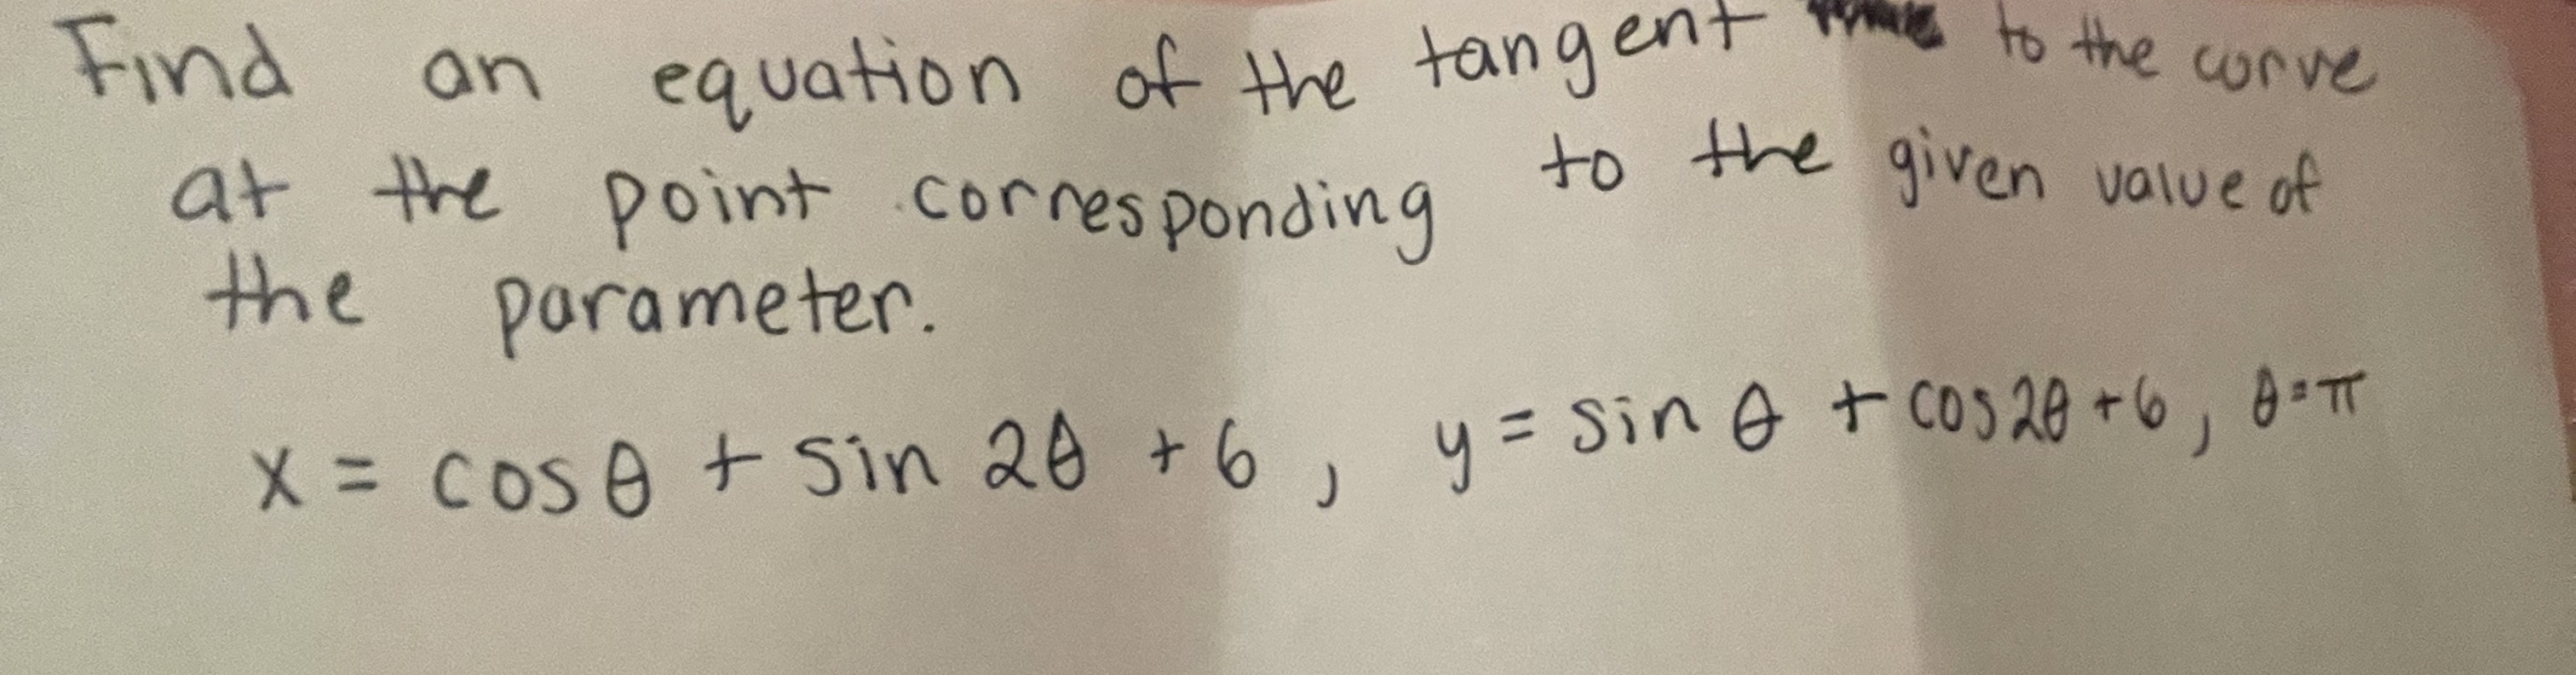 Find an equation of the tangent to the curve
at the point corresponding to the given value of
the parameter.
x = cos θ + sin 2θ + 6, y = sin θ + cos 2θ + 6, θ = π